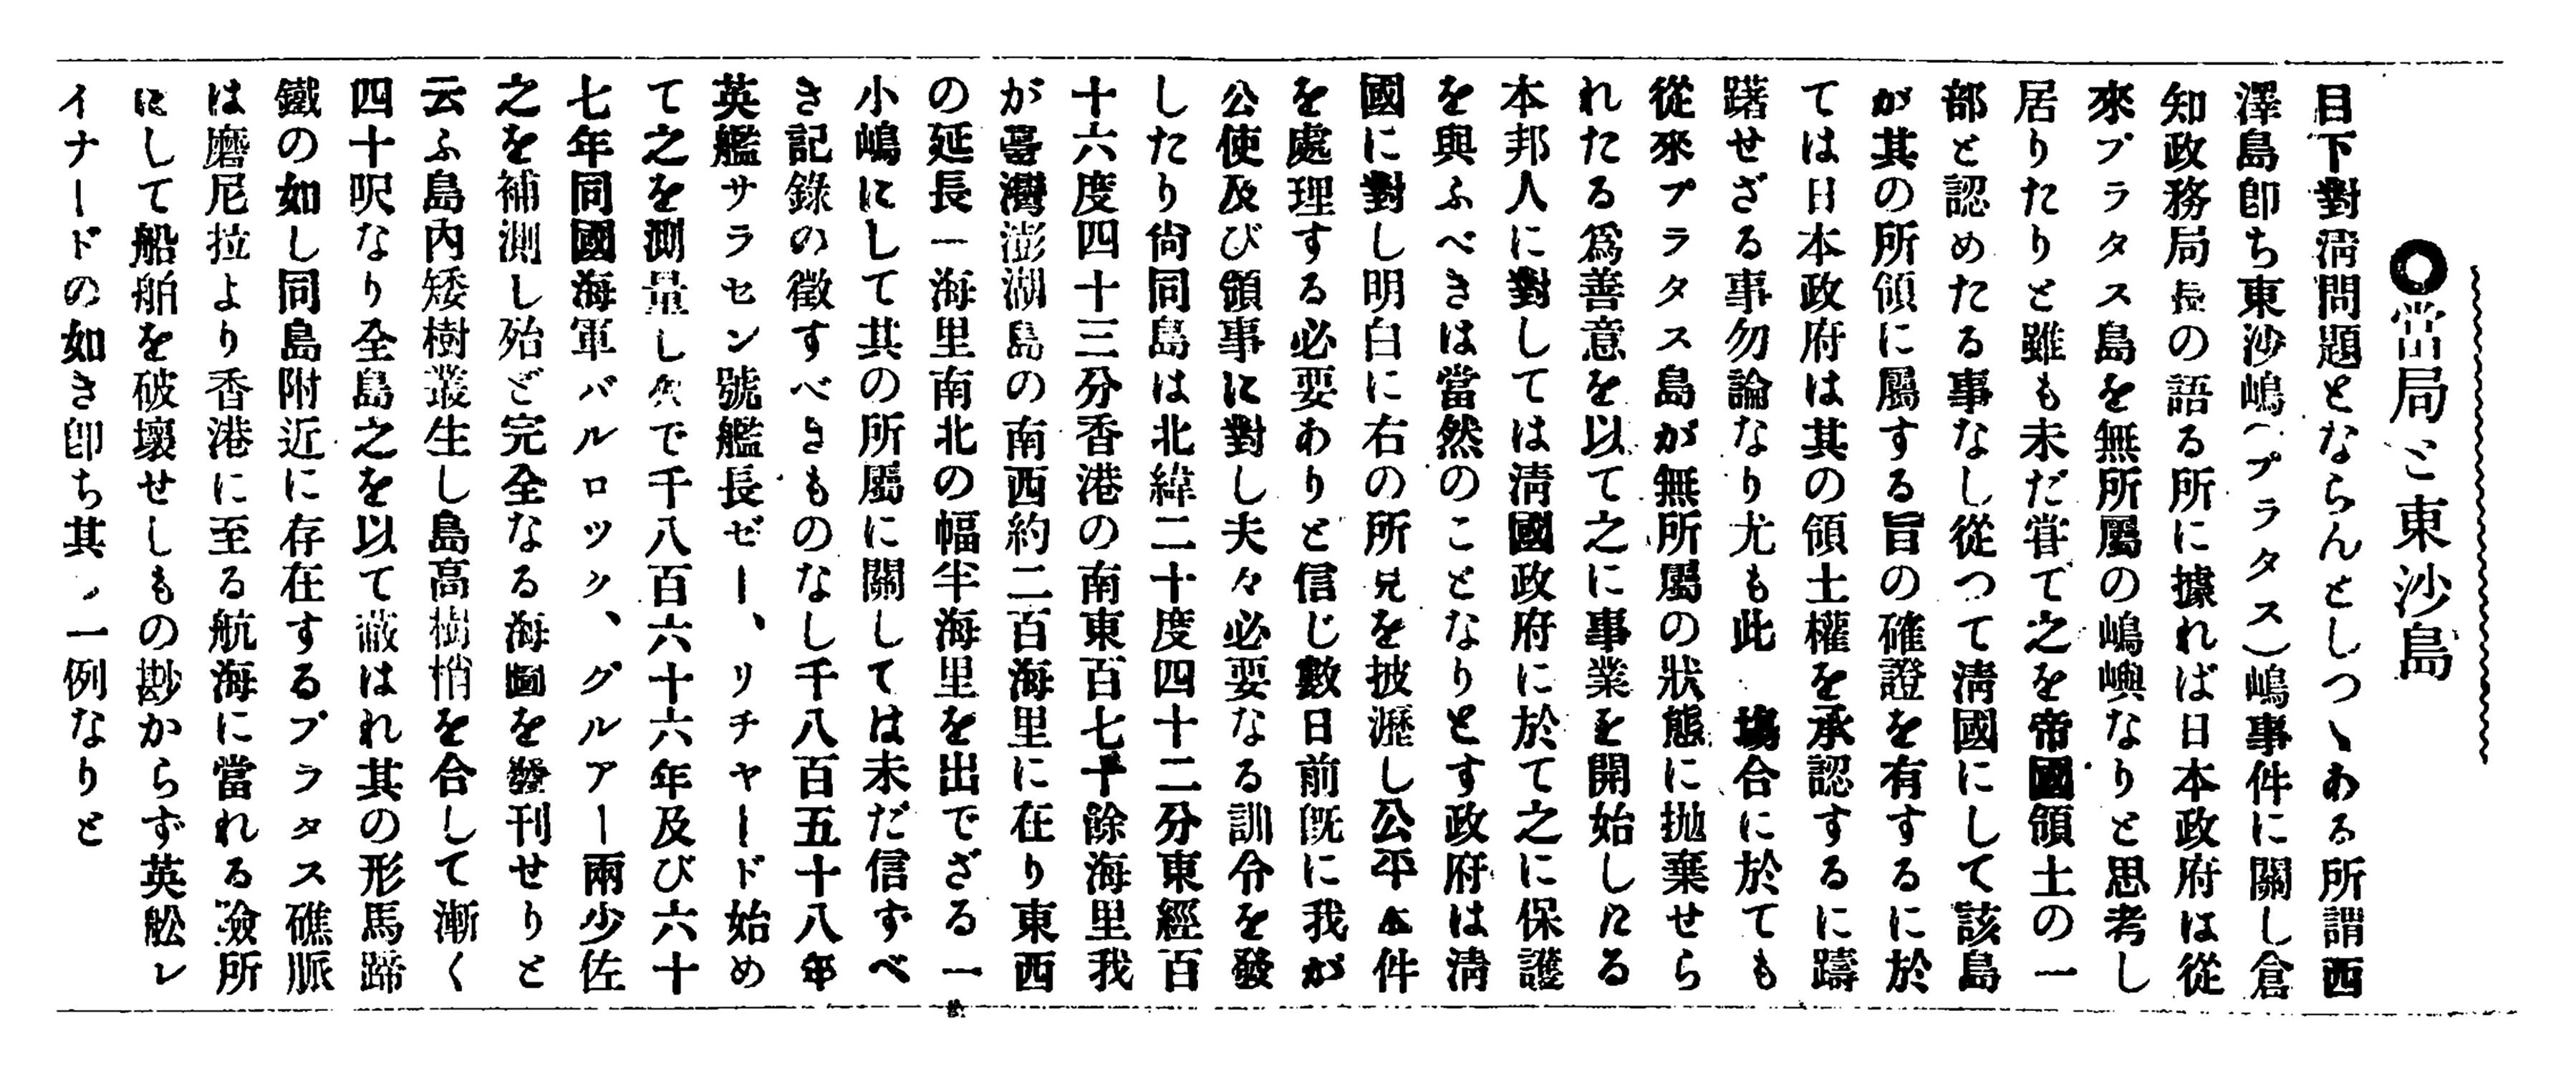 ◎當局と東沙島
目下對淸問題とならんとしつゝある所謂西
澤島卽ち東沙嶋(プラタス)嶋事件に關し倉
知政務局長の語る所に據れば日本政府は從
來プラタス島を無所屬の嶋嶼なりと思考し
居りたりと雖も未だ甞て之を帝國領土の一
部と認めたる事なし從つて淸國にして該島
が其の所領に屬する旨の確證を有するに於
ては日本政府は其の領土權を承認するに躊
躇せざる事勿論なり尤も此塲合に於ても
從來プラタス島が無所屬の狀態に抛棄せら
れたる爲善意を以て之に事業を開始したる
本邦人に對しては淸國政府に於て之に保護
を與ふべきは當然のことなりとす政府は淸
國に對し明白に右の所見を披瀝し公平本件
を處理する必要ありと信じ數日前旣に我が
公使及び領事に對し夫々必要なる訓令を發
したり尙同島は北緯二十度四十二分東經百
十六度四十三分香港の南東百七十餘海里我
が臺灣澎湖島の南西約二百海里に在り東西
の延長一海里南北の幅半海里を出でざる一
小嶋にして其の所屬に關しては未だ信ずべ
き記錄の徵すべきものなし千八百五十八年
英艦サラセン號艦長ゼー、リチャード始め
て之を測量し次で千八百六十六年及び六十
七年同國海軍バルロック、グルアー兩少佐
之を補測し殆ど完全なる海圖を發刊せりと
云ふ島內矮樹叢生し島高樹梢を合して漸く
四十呎なり全島之を以て蔽はれ其の形馬蹄
鐵の如し同島附近に存在するプラタス礁脈
は磨尼拉より香港に至る航海に當れる險所
にして船舶を破壞せしもの尠からず英舩レ
イナードの如き卽ち其ノ一例なりと